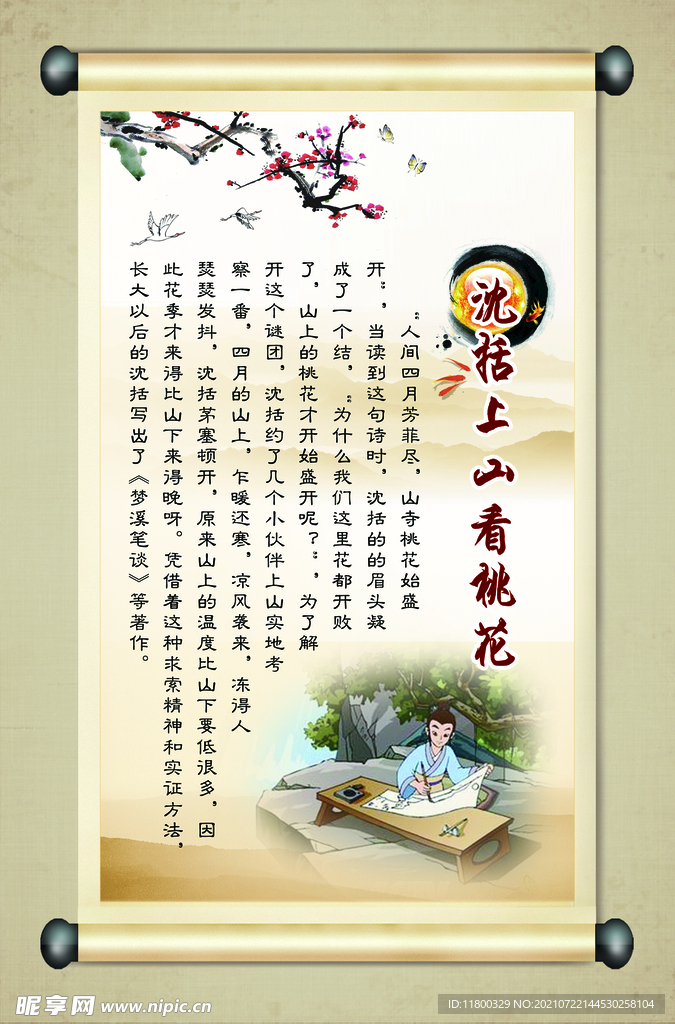 沈括上山看桃花
“人间四月芳菲尽，山寺桃花始盛
开”，当读到这句诗时，沈括的的眉头凝
成了一个结，“为什么我们这里花都开败
了，山上的桃花才开始盛开呢？”，为了解
开这个谜团，沈括约了几个小伙伴上山实地考
察一番，四月的山上，乍暖还寒，凉风袭来，冻得人
瑟瑟发抖，沈括茅塞顿开，原来山上的温度比山下要低很多，因
此花季才来得比山下来得晚呀。凭借着这种求索精神和实证方法，
长大以后的沈括写出了《梦溪笔谈》等著作。
昵享网 www.nipic.cn
ID:11800329 NO:20210722144530258104